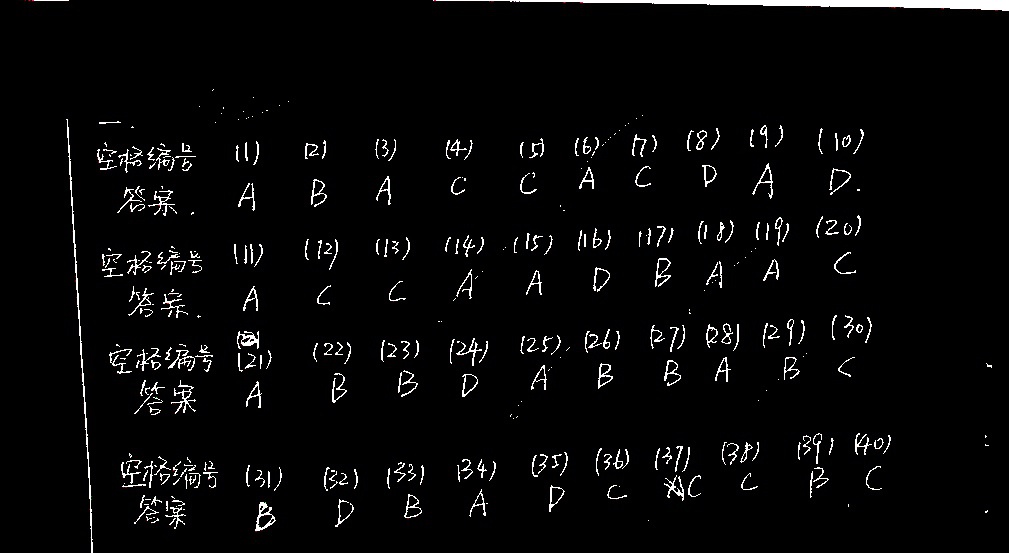 一.
空格编号 (1) (2) (3) (4) (5) (6) (7) (8) (9) (10)
答案. A B A C C A C D A D.
空格编号 (11) (12) (13) (14) (15) (16) (17) (18) (19) (20)
答案. A C C A A D B A A C
空格编号 (21) (22) (23) (24) (25) (26) (27) (28) (29) (30)
答案 A B B D A B B A B C
空格编号 (31) (32) (33) (34) (35) (36) (37) (38) (39) (40)
答案 B D B A D C C C B C